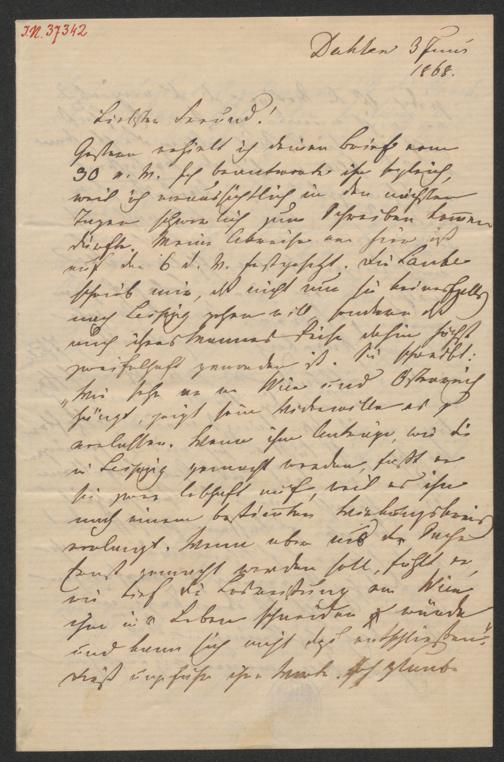 I.N. 37342
Dahlen 3 Juni
1868.
Liebster Freund!
Gestern erhielt ich deinen Brief vom
30 v. M. Ich beantworte ihn sogleich,
weil ich voraussichtlich in den nächsten
Tagen schwerlich zum Schreiben kommen
dürfte. Meine Abreise von hier ist
auf den 6 d. M. festgesetzt. Die Laube
schrieb mir, daß nicht nur sie keinesfalls
nach Leipzig gehen will, sondern daß
auch ihres Mannes Reise dahin höchst
zweifelhaft geworden ist. Sie schreibt:
„Wie sehr er an Wien und Österreich
hängt, zeigt sein Widerwille es zu
verlassen. Wenn ihm Anträge, wie die
in Leipzig gemacht werden, faßt er
sie zwar lebhaft auf, weil es ihn
nach einem bestimmten Wirkungskreis
verlangt. Wenn aber aus der Sache
Ernst gemacht werden soll, fühlt er,
wie tief die Losreißung von Wien
ihm in's Leben schneiden würde
und kann sich nicht dazu entschließen".
Dieß ungefähr ihre Worte. Ich glaube